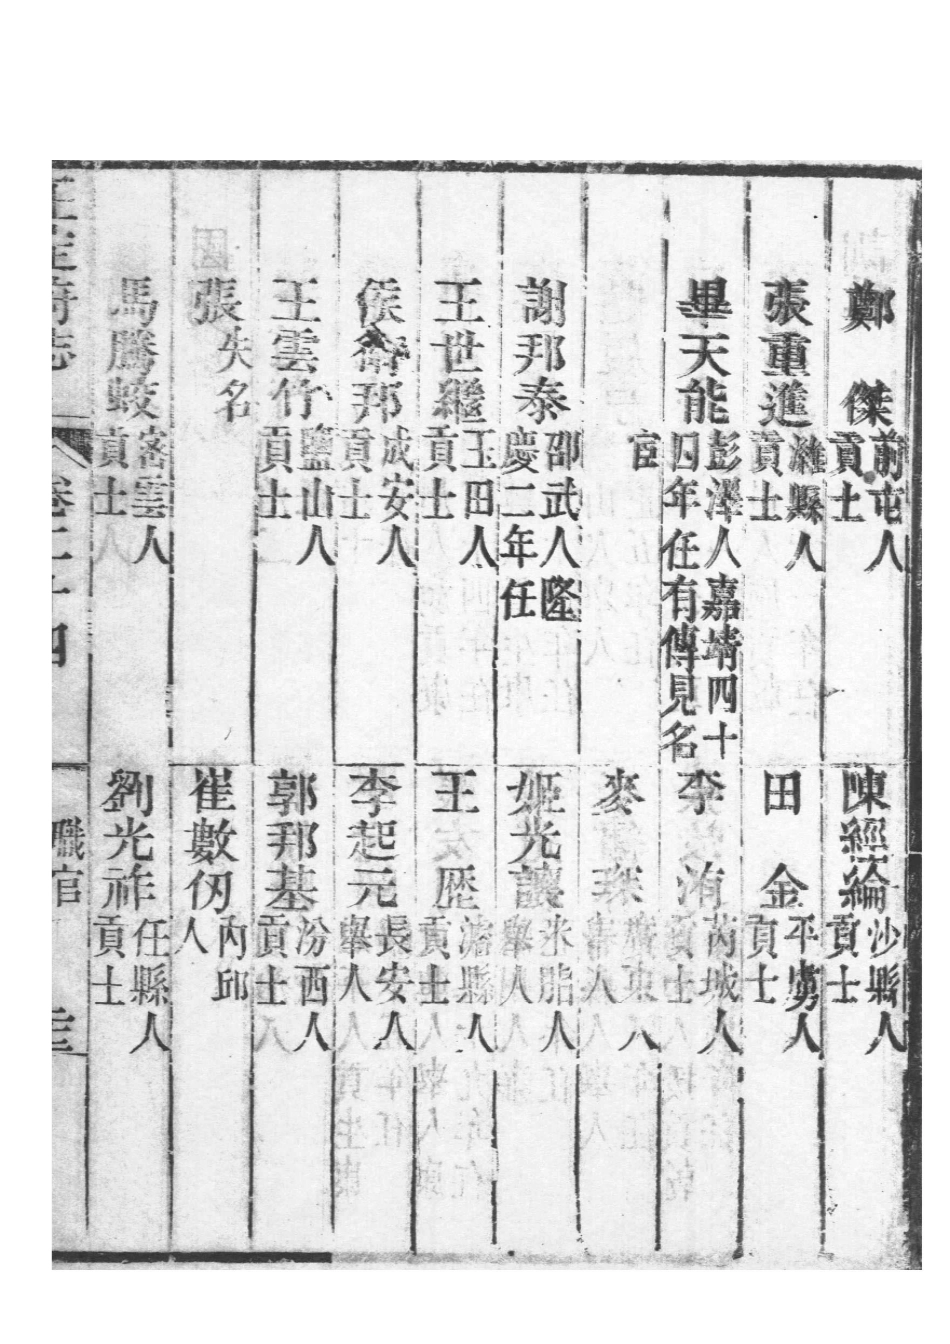 鄭傑前屯人貢士
陳經綸沙縣人貢士
張重進濰縣人貢士
田金平虜人貢士
畢天能彭澤人嘉靖四十四年任有傳見名
李洧芮城人貢士
宦
麥
謝邦泰邵武人隆慶二年任
姬光讓米脂人舉人
王世繼玉田人貢士
王歷濬縣人貢士
侯 邦成安人貢士
李起元長安人舉人
王雲竹鹽山人貢士
郭邦基汾西人貢士
張失名
崔數仞內邱人
馬騰蛟密雲人貢士
劉光祚任縣人貢士
府志 卷二十四 職官